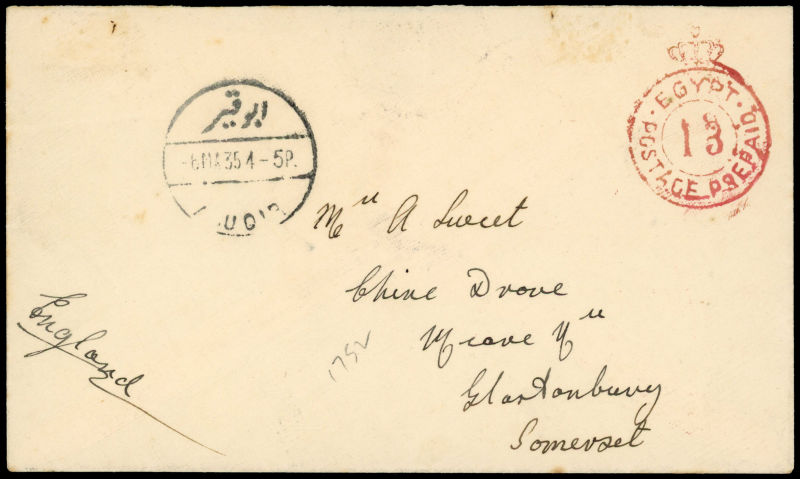 EGYPT
POSTAGE PREPAID
13
ابو قير
-6 MA 35 4-5P.
Mrs A Sweet
Chine Drove
Meare Nr
Glastonbury
Somerset
England
1752